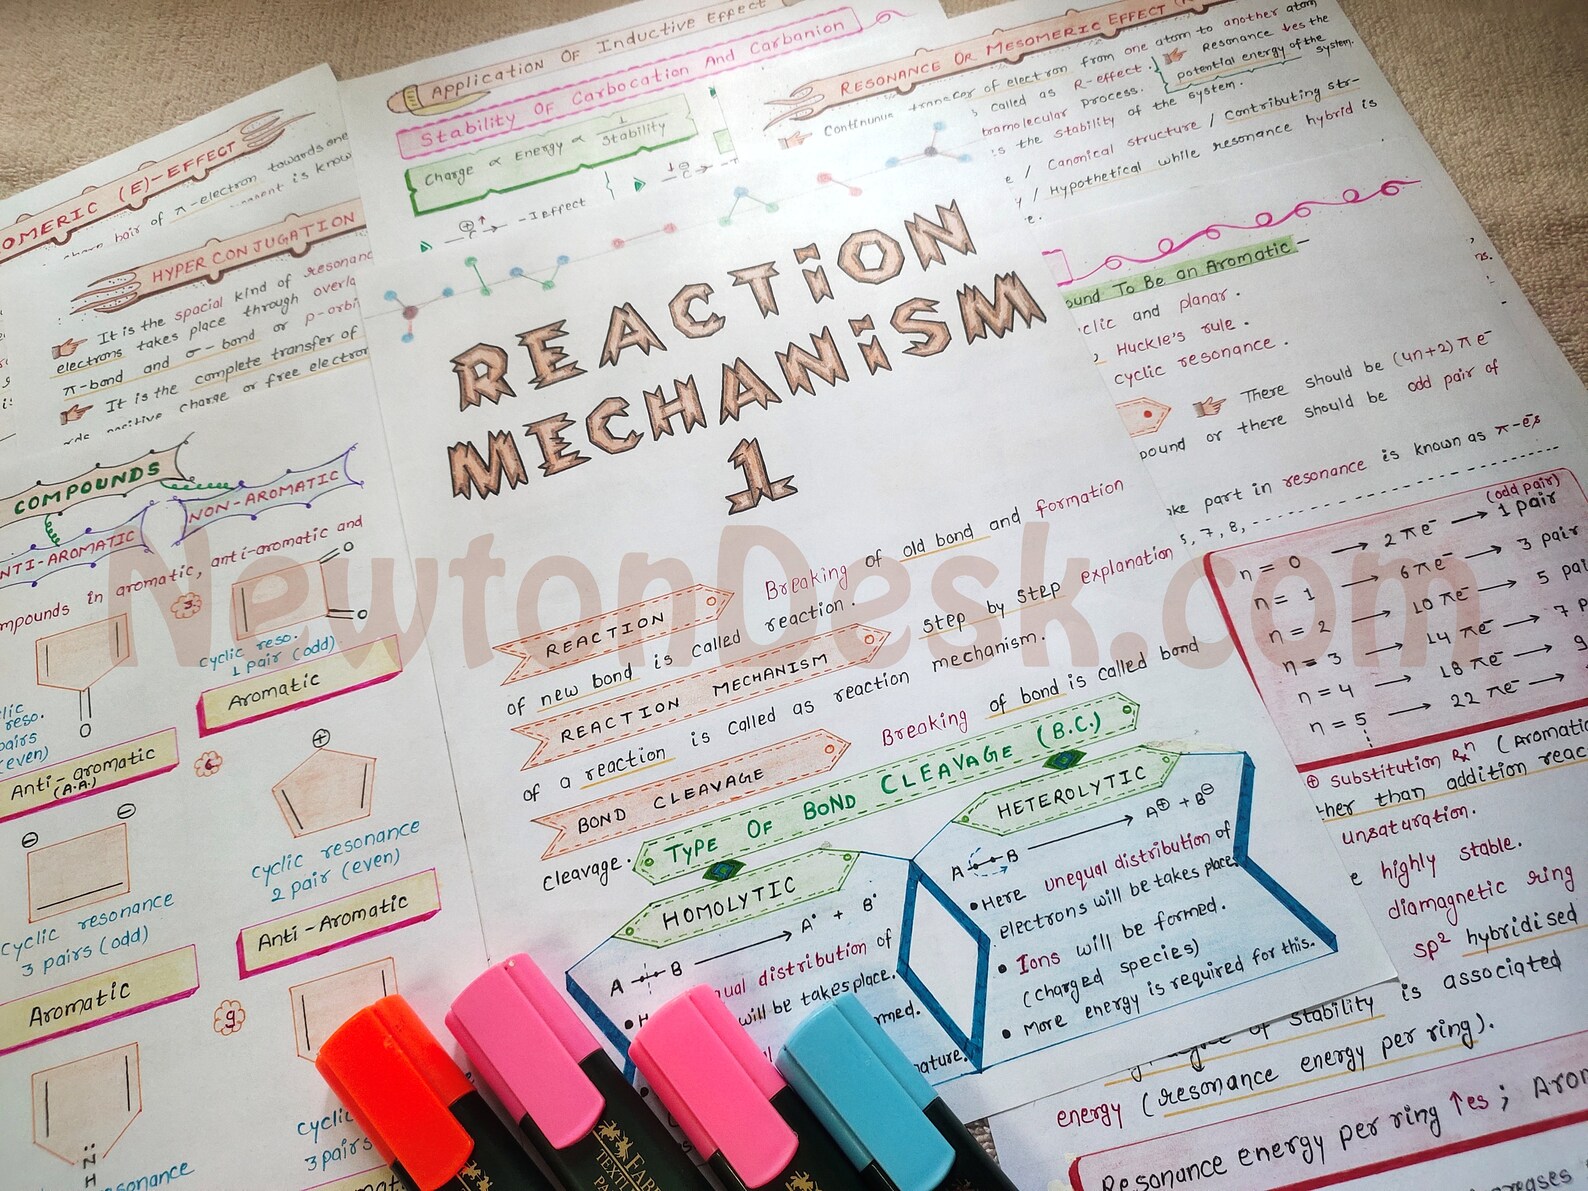 OMERIC (E)-EFFECT
of π-electron towards one
HYPER CONJUGATION
It is the spacial kind of resonanc
electrons takes place through overla
π-bond and σ-bond or p-orbi
It is the complete transfer of
positive charge or free electron
COMPOUNDS
NTI-AROMATIC
NON-AROMATIC
mpounds in aromatic, anti-aromatic and
O
reso.
pairs
(even)
Anti-aromatic
(A.A.)
3
O
O
cyclic reso.
1 pair (odd)
Aromatic
⊖
⊖
cyclic resonance
3 pairs (odd)
Aromatic
6
⊕
cyclic resonance
2 pair (even)
Anti-Aromatic
N
H
9
3 pairs
Application Of Inductive Effect
Stability Of Carbocation And Carbanion
Charge ∝ Energy ∝ 1/Stability
-I effect
REACTION
MECHANISM
1
REACTION Breaking of old bond and formation
of new bond is called reaction.
REACTION MECHANISM step by step explanation
of a reaction is called as reaction mechanism.
BOND CLEAVAGE Breaking of bond is called bond
cleavage.
TYPE OF BOND CLEAVAGE (B.C.)
HOMOLYTIC
A B → A• + B•
ual distribution of
will be takes place.
med.
ature.
HETEROLYTIC
A B → A⊕ + B⊖
• Here unequal distribution of
electrons will be takes place
• Ions will be formed.
(charged species)
• More energy is required for this.
RESONANCE OR MESOMERIC EFFECT
Continuous transfer of electron from one atom to another atom
called as R-effect.
tramolecular process.
is the stability of the system.
Resonance ↓es the
potential energy of the
system.
/ Canonical structure / Contributing str-
/ Hypothetical while resonance hybrid is
ound To Be an Aromatic -
clic and planar.
Huckle's rule.
cyclic resonance.
There should be (4n+2) π e⁻
pound or there should be odd pair of
ke part in resonance is known as π-e⁻s
5, 7, 8,
(odd pair)
n = 0 → 2 π e⁻ → 1 pair
n = 1 → 6 π e⁻ → 3 pair
n = 2 → 10 π e⁻ → 5 pai
n = 3 → 14 π e⁻ → 7 p
n = 4 → 18 π e⁻ → 9
n = 5 → 22 π e⁻ →
⊕ substitution Rxⁿ (Aromatic
ther than addition reac
unsaturation.
highly stable.
diamagnetic ring
sp² hybridised
of stability is associated
energy (resonance energy per ring).
Resonance energy per ring ↑es ; Arom
NewtonDesk.com
FABE
TEXTLI